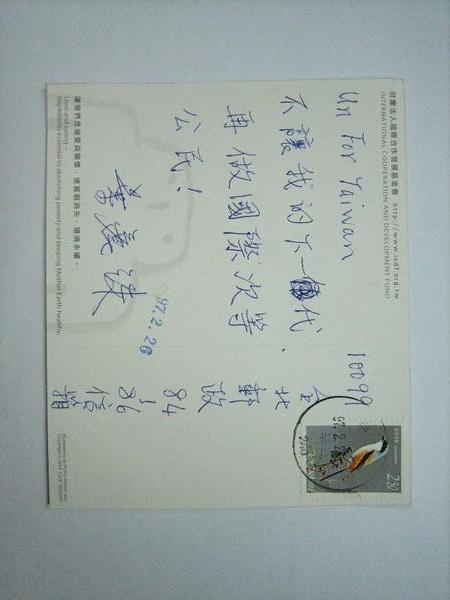 財團法人國際合作發展基金會 http://www.icdf.org.tw
INTERNATIONAL COOPERATION AND DEVELOPMENT FUND
UN For Taiwan
不讓我的下一代
再做國際次等
公民!
97.2.26
10099
台北郵政84
86信箱
250
Love and caring –
Ingredients essential to abolishing poverty and keeping Mother Earth healthy.